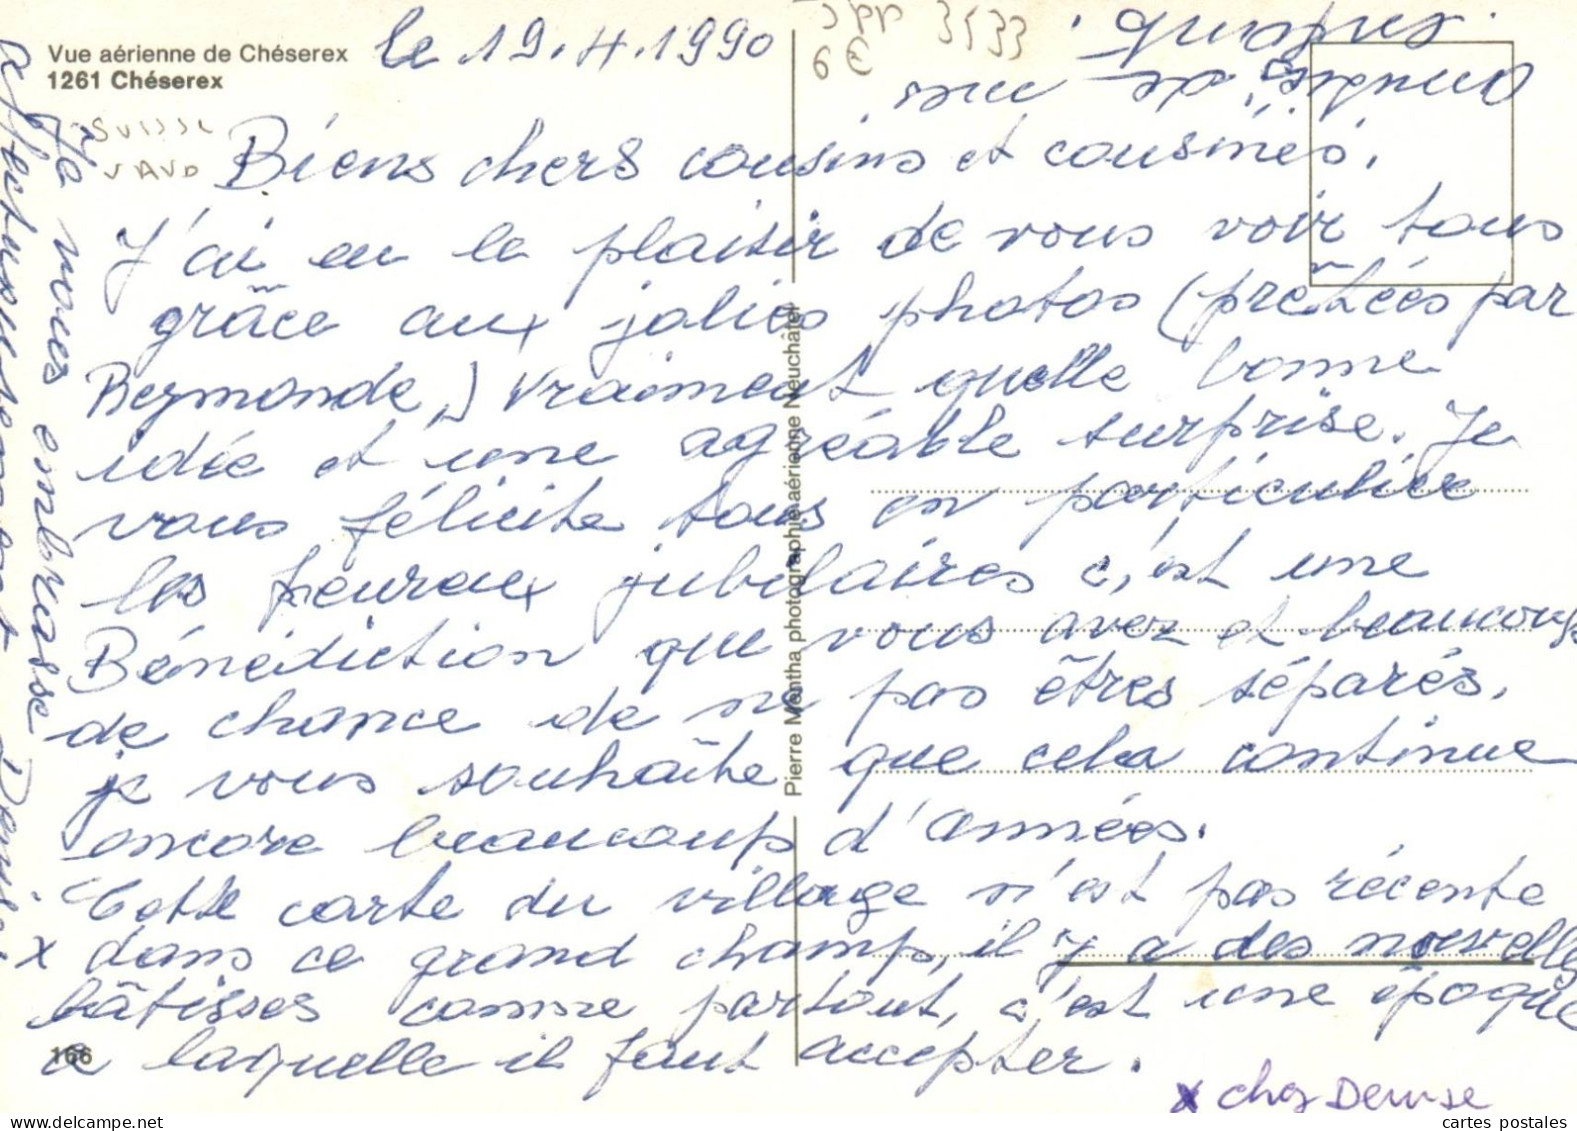 Vue aérienne de Chéserex
1261 Chéserex
le 19.4.1990
3533
6€
SUISSE
VAUD
Biens chers cousins et cousines.
J'ai eu le plaisir de vous voir tous
grâce aux jolies photos (prêtées par
Reymonde,) vraiment quelle bonne
idée et une agréable surprise. Je
vous félicite tous en particulier
les heureux jubilaires c'est une
Bénédiction que vous avez et beaucoup
de chance de ne pas êtres séparés.
je vous souhaîte que cela continue
encore beaucoup d'années.
Cette carte du village n'est pas récente
x dans ce grand champ, il y a des nouvelles
bâtisses comme partout, c'est une époque
a laquelle il faut accepter.
166
x chez Denise
Je vous embrasse
affectueusement Denise
Pierre Mentha photographie aérienne Neuchâtel
cartes postales